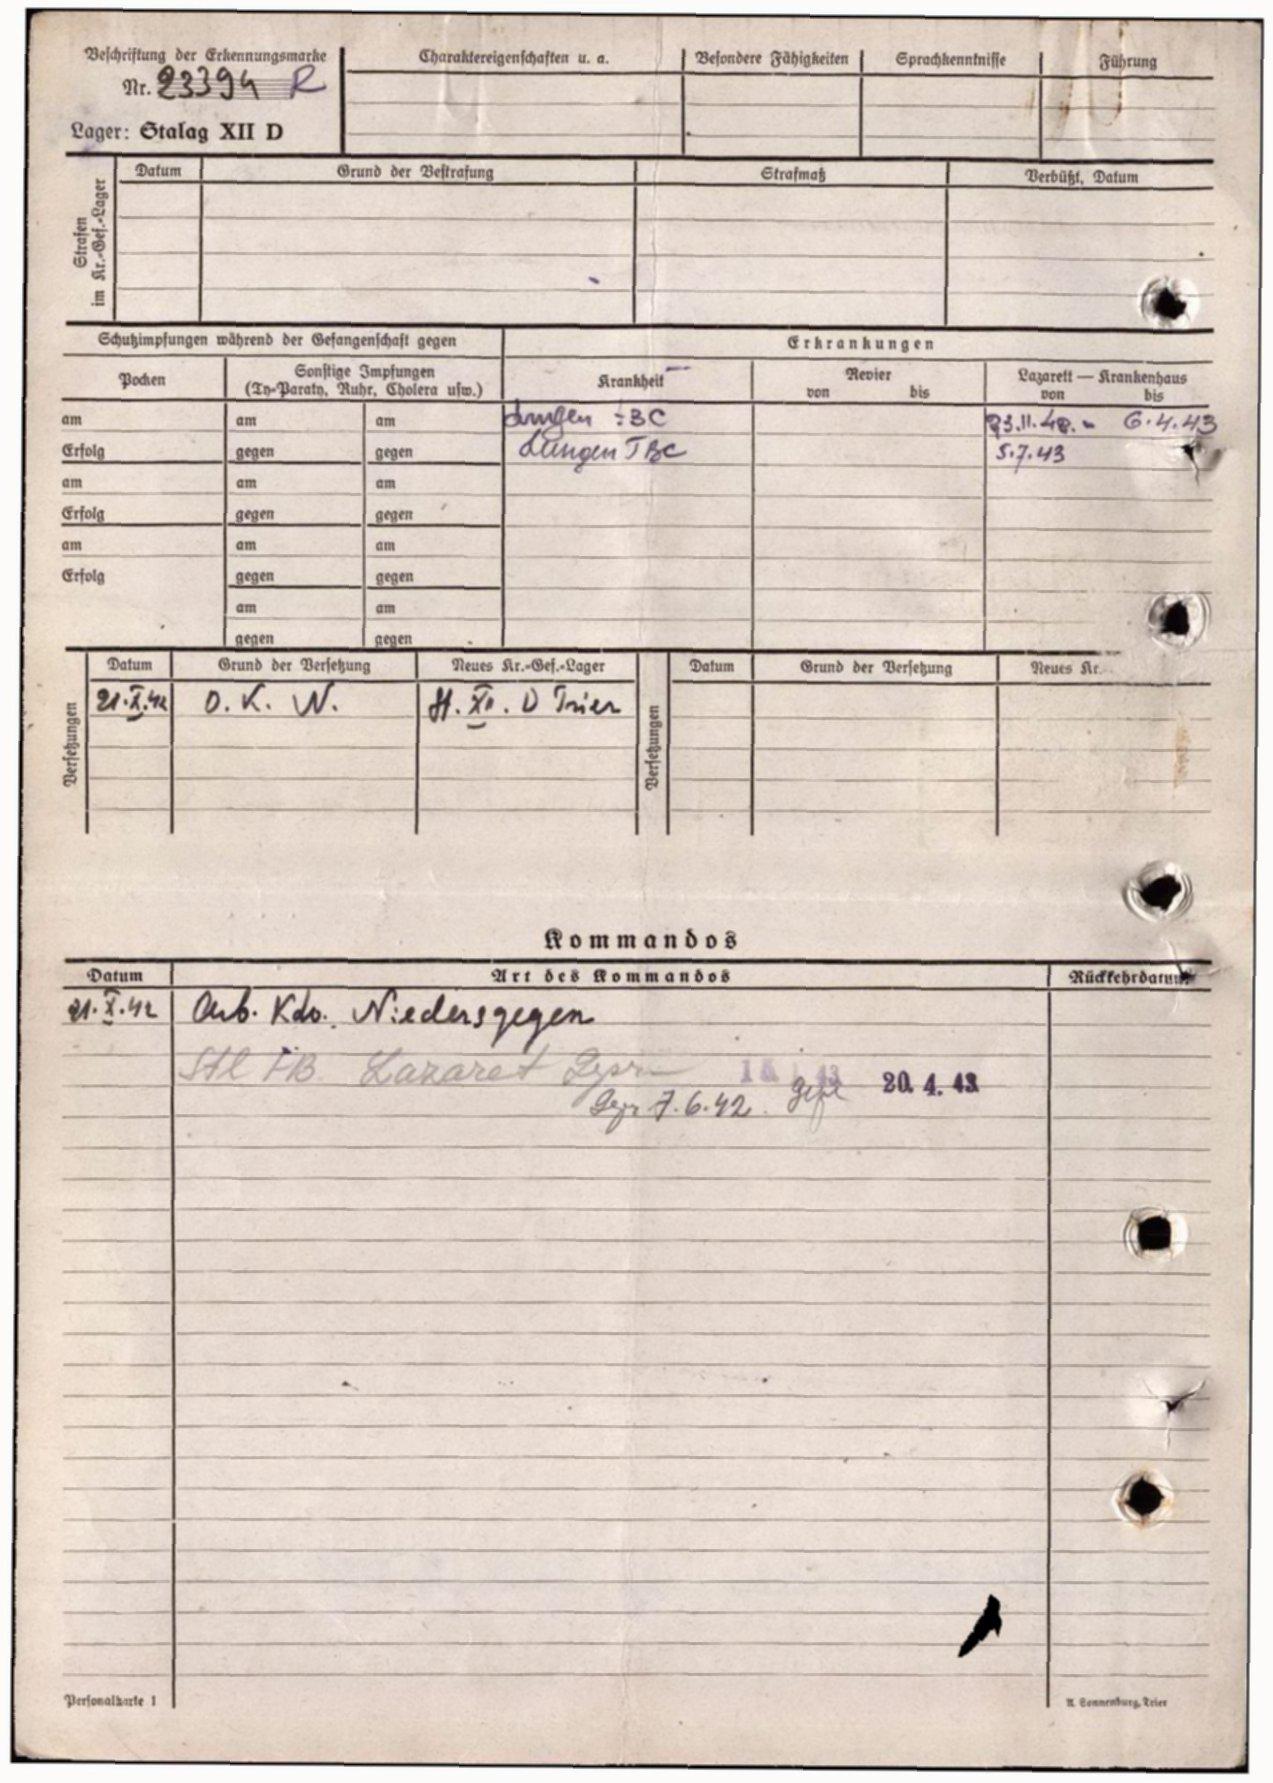 Beschriftung der Erkennungsmarke
Nr. 23394 R
Lager: Stalag XII D
Charaktereigenschaften u. a.
Besondere Fähigkeiten
Sprachkenntnisse
Führung
Strafen
im Kr.-Gef.-Lager
Datum
Grund der Bestrafung
Strafmaß
Verbüßt, Datum
Schutzimpfungen während der Gefangenschaft gegen
Erkrankungen
Pocken
Sonstige Impfungen
(Ty-Paraty, Ruhr, Cholera usw.)
Krankheit
Revier
von bis
Lazarett — Krankenhaus
von bis
am am am Lungen TBC 23.11.42. - 6.4.43
Erfolg gegen gegen Lungen TBC 5.7.43
am am am
Erfolg gegen gegen
am am am
Erfolg gegen gegen
am am
gegen gegen
Versetzungen
Datum Grund der Versetzung Neues Kr.-Gef.-Lager
21.X.42 O. K. W. XII. D Trier
Versetzungen
Datum Grund der Versetzung Neues Kr.
Kommandos
Datum Art des Kommandos Rückkehrdatum
21.X.42 Arb. Kdo. Niedersgegen
Lazaret 43 20. 4. 43
7.6.42.
Personalkarte 1
A. Sonnenburg, Trier